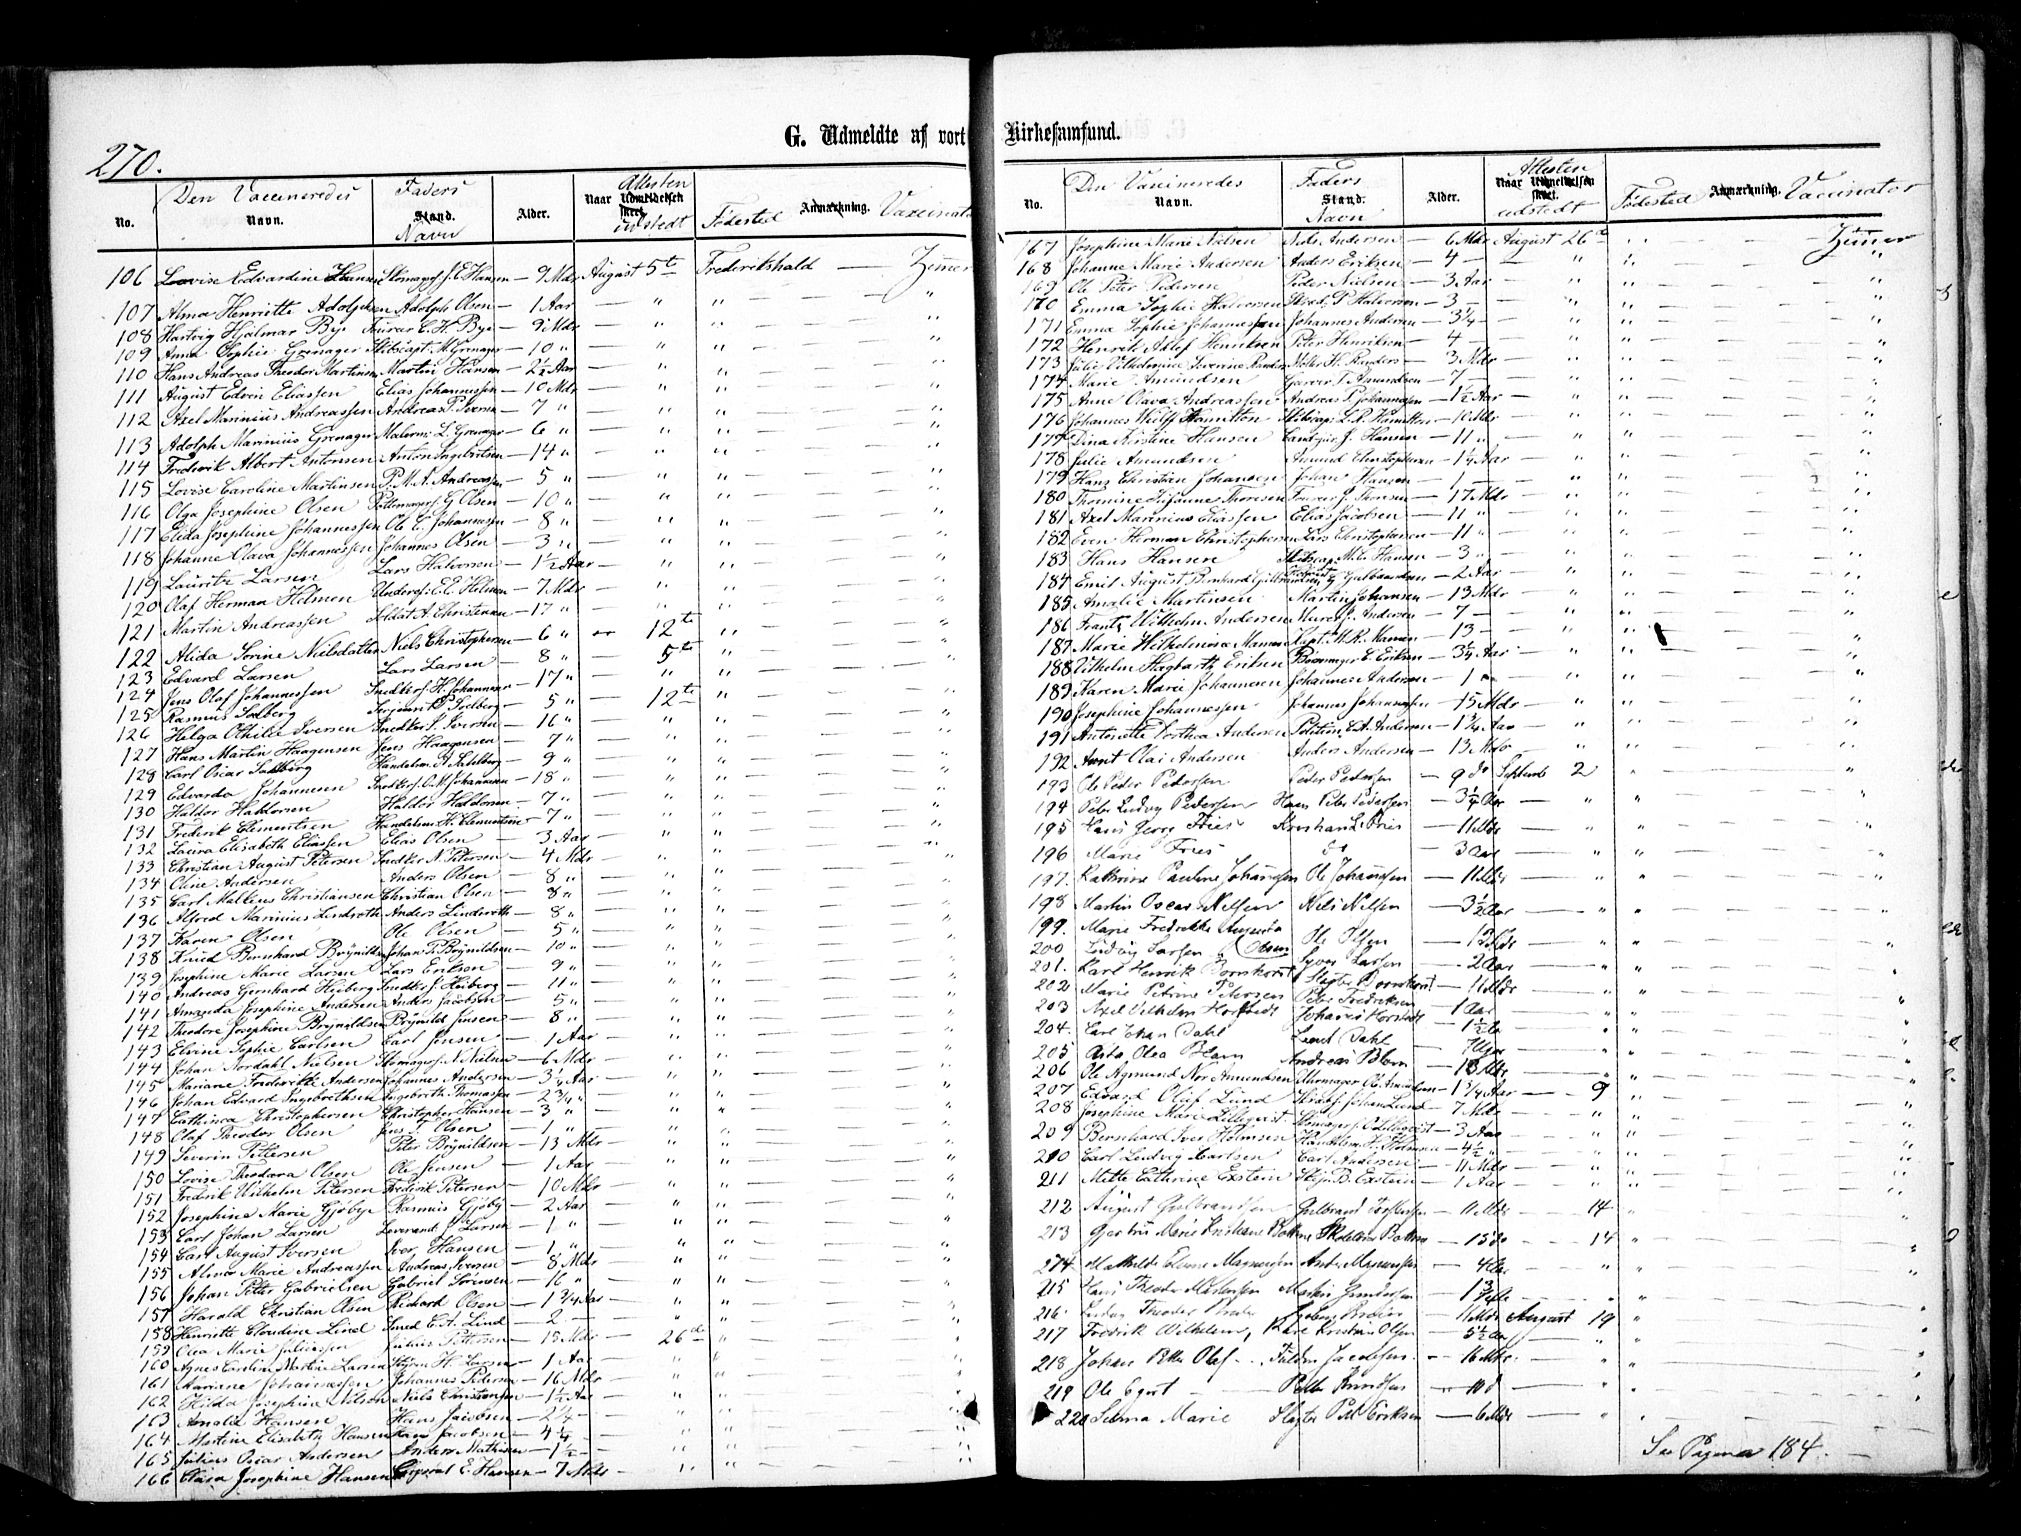 270.
G. Udmeldte af vort Kirkesamfund.
No. Den Vaccineredes Navn. Faders Stand. Navn Alder. Naar Udmeldelsen skeet. Attesten udstedt Fødested Anmærkning. Vaccinator
106 Lovise Edvardine Hansen Skomagerf. E. Hansen — 9 Mdr August 5te Frederikshald — Zimer
107 Alma Henriette Adolphsen Adolph Olsen — 1 Aar — " " — "
108 Hartvig Hjalmar Bye C. H. Bye — 9 Mdr — " " — "
109 Anna Sophie Grenager Skibscapt. M. Grenager — 10 " — " " — "
110 Hans Andreas Theodor Martinsen Martin Hansen — 2½ Aar — " " — "
111 August Edvin Eliassen Elias Johannessen — 10 Mdr — " " — "
112 Axel Marinius Andreassen Andreas P. Iversen — 7 " — " " — "
113 Adolph Marinius Grenager Malerm. L. Grenager — 6 " — " " — "
114 Frederik Albert Antonsen Anton Ingebretsen — 14 " — " " — "
115 Lovise Caroline Martinsen P. M. A. Andreassen — 5 " — " " — "
116 Olga Josephine Olsen Pottemagerf. G. Olsen — 10 " — " " — "
117 Elida Josephine Johannessen Ole E. Johannessen — 8 " — " " — "
118 Johanne Olava Johannessen Johannes Olsen — 3 " — " " — "
119 Lauritz Larsen Lars Halvorsen — 1½ Aar — " " — "
120 Olaf Herman Helmen Underof. E. E. Helmen — 7 Mdr — " " — "
121 Martin Andreassen Soldat A. Christensen — 17 " — " " — "
122 Alida Sorine Nielsdatter Niels Christophersen — 6 " — 12te " — "
123 Edvard Larsen Lars Larsen — 8 " — 5te " — "
124 Jens Olaf Johannessen Snedkerf. H. Johannesen — 17 " — " " — "
125 Rasmus Solberg Serjeant P. Solberg — 5 " — 12te " — "
126 Helga Othilie Iversen Snedker J. Iversen — 16 " — " " — "
127 Hans Martin Haagensen Jens Haagensen — 7 " — " " — "
128 Carl Oscar Sahlberg Handelsm. A. Sahlberg — 9 " — " " — "
129 Edvarda Johannesen Snedkerf. O. M. Johannesen — 18 " — " " — "
130 Haldor Haldorsen Haldor Haldorsen — 7 " — " " — "
131 Frederik Clementsen Handelsm. H. Clementsen — 7 " — " " — "
132 Laura Elisabeth Eliassen Elias Olsen — 3 Aar — " " — "
133 Christian August Petersen Snedker N. Petersen — 4 Mdr — " " — "
134 Oline Andersen Anders Olsen — 8 " — " " — "
135 Carl Malthus Christiansen Christian Olsen — 8 " — " " — "
136 Alfred Marinius Linderoth Anders Linderoth — 8 " — " " — "
137 Karen Olsen Ole Olsen — 5 " — " " — "
138 Knud Bernhard Brynildsen Johan P. Brynildsen — 10 " — " " — "
139 Josephine Marie Larsen Lars Eriksen — 9 " — " " — "
140 Andreas Gernhard Heiberg Snedker J. Heiberg — 11 " — " " — "
141 Amanda Josephine Andersen Anders Jacobsen — 5 " — " " — "
142 Theodore Josephine Brynildsen Brynild Jensen — 8 " — " " — "
143 Elvine Sophie Carlsen Carl Jensen — 1 Aar — " " — "
144 Johan Nordahl Nielsen Skomagerf. N. Nielsen — 6 Mdr — " " — "
145 Mariane Frederikke Andersen Johannes Andersen — 3¼ Aar — " " — "
146 Johan Edvard Ingebrethsen Ingebreth Thomassen — 2¾ " — " " — "
147 Cathinca Christophersen Christopher Hansen — 3 " — " " — "
148 Olaf Theodor Olsen Jens T. Olsen — 1 " — " " — "
149 Severin Pettersen Peter Brynildsen — 13 Mdr — " " — "
150 Lovise Theodora Olsen Ole Jensen — 1 Aar — " " — "
151 Fredrik Wilhelm Petersen Frederik Petersen — 10 Mdr — " " — "
152 Josephine Marie Gjøbye Rasmus Gjøby — 2 Aar — " " — "
153 Carl Johan Larsen J. Larsen — 1 " — " " — "
154 Carl August Iversen Iver Hansen — 1 " — " " — "
155 Alma Marie Andreassen Andreas Iversen — 8 Mdr — " " — "
156 Johan Peter Gabrielsen Gabriel Sørensen — 16 " — " " — "
157 Harald Christian Olsen Richard Olsen — 1¾ Aar — " " — "
158 Henriette Claudine Lind Smed E. A. Lind — 2 — " " — "
159 Olea Marie Juliussen Julius Pettersen — 15 Mdr — 26de " — "
160 Agnes Caroline Martine Larsen H. Larsen — 1 Aar — " " — "
161 Mariane Johannessen Johannes Pedersen — 16 Mdr — " " — "
162 Hilda Josephine Nilsen Niels Christiansen — 1½ Aar — " " — "
163 Amalie Hansen Hans Jacobsen — 2¼ — " " — "
164 Martine Elisabeth Hansen Hans Jacobsen — 4¼ — " " — "
165 Julius Oscar Andersen Anders Mathisen — 1½ — " " — "
166 Clara Josephine Hansen Corporal E. Hansen — 7 Mdr — " " — "
No. Den Vaccineredes Navn. Faders Stand. Navn Alder. Naar Udmeldelsen skeet. Attesten udstedt Fødested Anmærkning. Vaccinator
167 Josephine Marie Nielsen Nels Andersen — 6 Mdr August 26de " — Zimer
168 Johanne Marie Andersen Anders Eriksen — 4 — " " — "
169 Ole Peter Pedersen Peder Nielsen — 3 Aar — " " — "
170 Emma Sophie Halvorsen P. Halvorsen — 3 — " " — "
171 Emma Sophie Johannessen Johannes Andersen — 3¼ — " " — "
172 Henrik Adlef Henriksen Peter Henriksen — 4 — " " — "
173 Julie Vilhelmine Severine Randers Møller H. Randers — 3 Mdr — " " — "
174 Marie Amundsen Garver T. Amundsen — 7 — " " — "
175 Anne Olava Andreassen Andreas P. Johannesen — 1½ Aar — " " — "
176 Johannes Wulf Hamilton L. R. Hamilton — 10 Mdr — " " — "
177 Dina Kirstine Hansen J. Hansen — 11 " — " " — "
178 Julie Amundsen Amund Christophersen — 1¼ Aar — " " — "
179 Hans Christian Johansen Johan Hansen — 1 — " " — "
180 Thomine Susanne Thoresen J. Thoresen — 17 Mdr — " " — "
181 Axel Marinius Eliassen Elias Jacobsen — 11 " — " " — "
182 Even Herman Christophersen Lars Christophersen — 11 " — " " — "
183 Hans Hansen Skibscap. M. C. Hansen — 3 " — " " — "
184 Emil August Bernhard Gulbrandsen G. Gulbrandsen — 2 Aar — " " — "
185 Amalie Martinsen Martin Johansen — 13 Mdr — " " — "
186 Frantz Wilhelm Andersen Murer J. Andersen — 7 — " " — "
187 Marie Wilhelmina Mamen Kapt. M. R. Mamen — 13 — " " — "
188 Vilhelm Hagbarth Eriksen Bøssemager C. Eriksen — 3¼ Aar — " " — "
189 Karen Marie Johannesen Johannes Andersen — 1 — " " — "
190 Josephine Johannessen Johannes Johannesen — 15 Mdr — " " — "
191 Antoniette Dorthea Andersen Politien. E. A. Andersen — 1¼ Aar — " " — "
192 Anut Olai Andersen Anders Andersen — 13 Mdr — " " — "
193 Ole Peder Pedersen Peder Pedersen — 9 do Septemb 2 " — "
194 Peter Ludvig Pedersen Hans Peter Pedersen — 3¼ Aar — " " — "
195 Hans Georg Fries Kristian L. Fries — 11 Mdr — " " — "
196 Marie Fries do — 3 Aar — " " — "
197. Kathrine Pauline Johansen Ole Johansen — 11 Mdr — " " — "
198 Martin Oscar Nilsen Nils Nilsen — 3½ Aar — " " — "
199. Marie Fredrikke Augusta Olsen Ole Olsen — 13 Mdr — " " — "
200 Ludvig Larsen Syver Larsen — 2 Aar — " " — "
201. Karl Henrik Bornkorst Slagter Bornkorst — 11 Mdr — " " — "
202 Marie Petrine Petersen Peter Fredriksen — " " — "
203 Axel Vilhelm Horstede Johannes Horstede 1 Aar — " " — "
204. Carl Johan Dahl Lent Dahl — 1½ Aar — " " — "
205 Asta Olea Blom Andreas Blom — 7 Uger — " " — "
206 Ole Agmund Nor Amundsen Uhrmager Ole Amundsen — 13 Mdr — " " — "
207 Edvard Olaf Lund Johan Lund — 1¾ Aar — 9 " — "
208 Josephine Marie Lilleqvist Skomager O. Lilleqvist — 7 Mdr — " " — "
209 Bernhard Iver Holmsen Handelsm. H. Holmsen — 3 Aar — " " — "
210 Carl Ludvig Carlsen Carl Andersen — 4½ " — " " — "
211 Mette Cathrine Exstein B. Exstein — 1 Aar — " " — "
212 August Gulbrandsen Gulbrand — 11 Mdr — 14 " — "
213 Marie Kristiane Skolelærer — 15 do — 14 " — "
214 Mathilde Magnussen Magnussen — 4 Aar — " " — "
215 Hans Theodor — 1¾ Aar — " " — "
216. Ludvig Theodor — 11 Mdr August 19 " — "
217 Fredrik Wilhelm, Kristian Olsen — 5½ Aar — " " — "
218 Johan Petter Olaf Jacobsen — 16 Mdr — " " — "
219 Ole Egnt — Petter Knudsen — 10 d — " " — "
220 Selma Marie Slagter Eriksen — 6 Mdr — "
Se Pagina 184. —